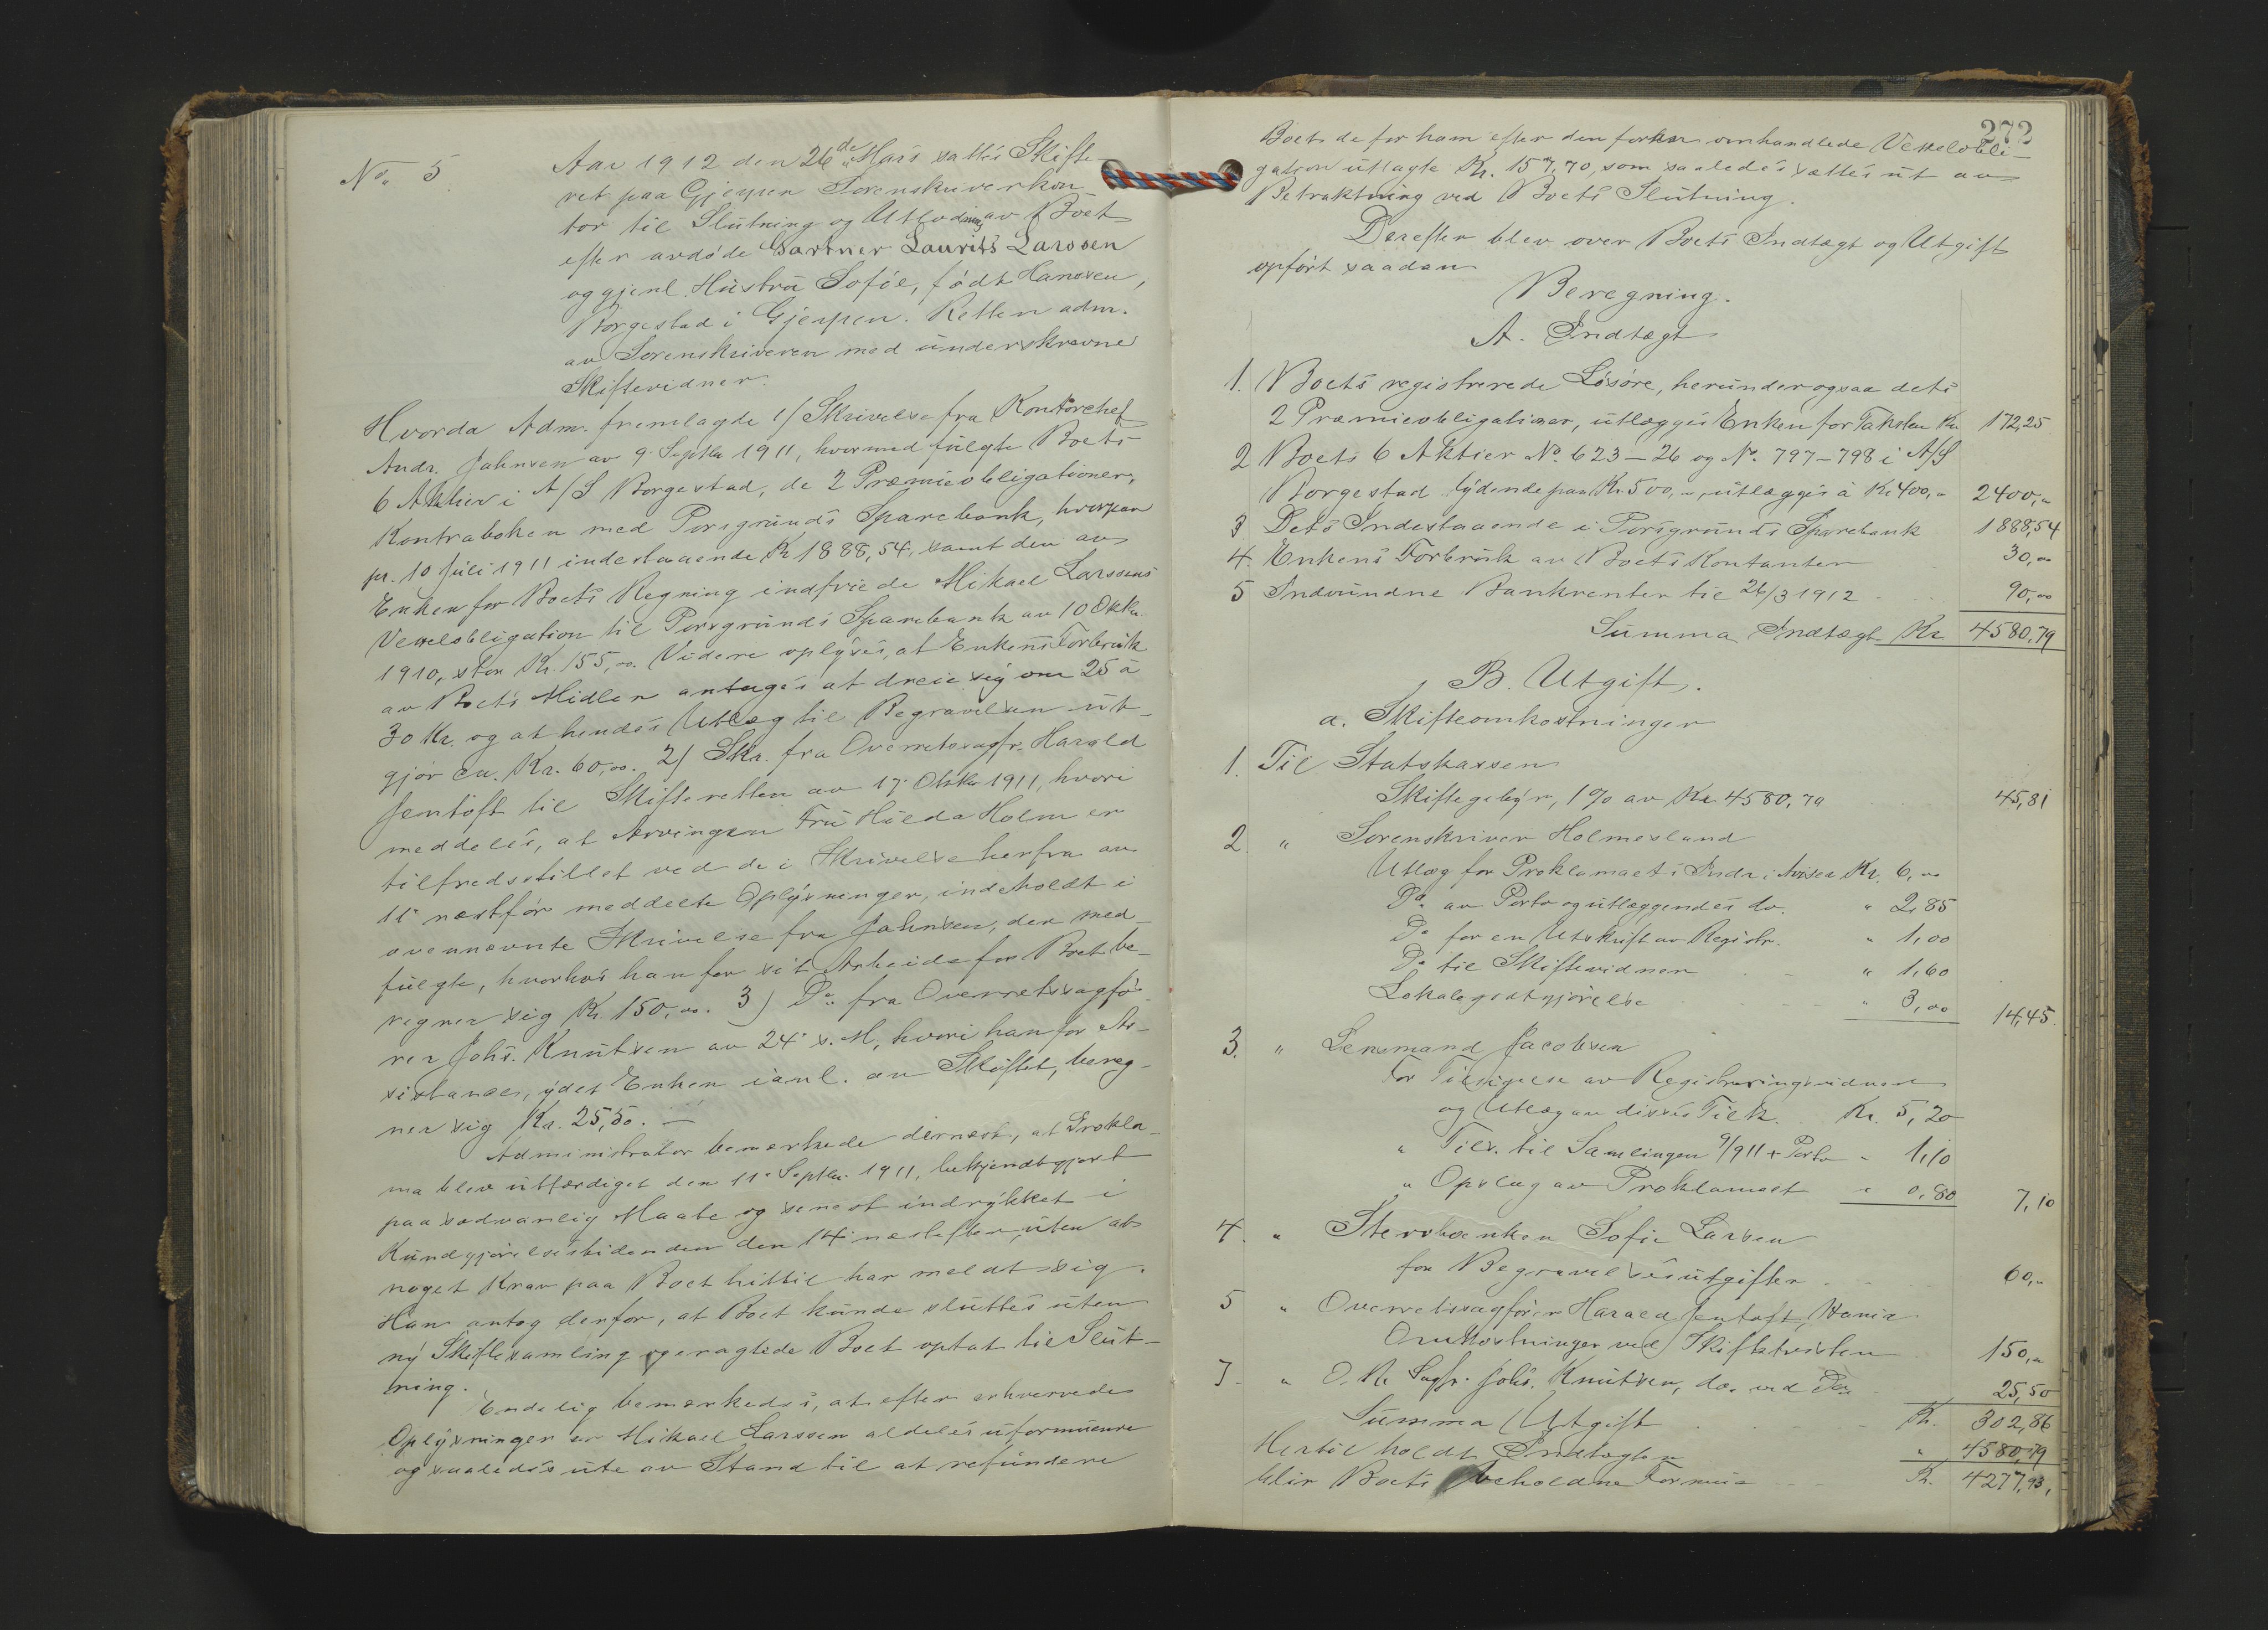 No. 5.
Aar 1912 den 26de Mars sattes Skifte-
ret paa Gjerpen Sorenskriverkon-
tor til Slutning og Utlodning av Boet
efter avdøde Gartner Laurits Larssen
og gjenl. Hustru Sofie, født Hanssen,
Borgestad i Gjerpen. Retten adm.
av Sorenskriveren med underskrevne
Skiftevidner.
Hvorda Adm. fremlagde 1/ Skrivelse fra Kontorchef
Andr. Jahnsen av 9. Septbr 1911, hvormed fulgte Boets
6 Aktier i A/S Borgestad, de 2 Præmieobligationer,
Kontraboken med Porsgrunds Sparebank, hvorpaa
pr. 10 Juli 1911 indestaaende Kr 1888,54, samt den av
Enken for Boets Regning indfriede Mikael Larssens
Vexelobligation til Porsgrunds Sparebank av 10 Oktbr.
1910, stor Kr. 155,00. Videre oplyses, at Enkens Forbruk
av Boets Midler antages at dreie sig om 25 à
30 Kr. og at hendes Utlæg til Begravelsen ut-
gjør ca. Kr. 60,00. 2) Skr. fra Overretssagfr. Harald
Jentoft til Skifteretten av 17. Oktbr 1911, hvori
meddeles, at Arvingen Fru Hilda Holm er
tilfredsstillet ved de i Skrivelse herfra av
11. næstfør meddelte Oplysninger, indeholdt i
ovennævnte Skrivelse fra Jahnsen, der med-
fulgte, hvorhos han for sit Arbeide for Boet be-
regner sig Kr. 150,00. 3) Do. fra Overretssagfø-
rer Johs. Knutsen av 24. s. M, hvori han for As-
sistance, ydet Enken i anl. av Skiftet, bereg-
ner sig Kr. 25,50. —
Administrator bemærkede dernæst, at Prokla-
ma blev utfærdiget den 11. Septbr. 1911, bekjendtgjort
paa sædvanlig Maate og senest indrykket i
Kundgjørelsestidenden den 14. næstefter, uten at
noget Krav paa Boet hittil har meldt sig.
Han antog derfor, at Boet kunde sluttes uten
ny Skiftesamling og eragtede Boet optat til Slut-
ning.
Endelig bemærkedes, at efter erhvervede
Oplysninger er Mikael Larssen aldeles uformuende
og saaledes ute av Stand til at refundere
272
Boet de for ham efter den forhen omhandlede Vexelobli-
gation utlagte Kr. 157,70, som saaledes sættes ut av
Betraktning ved Boets Slutning.
Derefter blev over Boets Indtægt og Utgift
opført saadan
Beregning.
A. Indtægt
1. Boets registrerede Løsøre, herunder ogsaa dets
2 Præmieobligationer, utlægges Enken for Taksten Kr. 172,25
2 Boets 6 Aktier No. 623-26 og No. 797-798 i A/S
Borgestad lydende paa Kr 500,- utlægges à Kr 400,- 2400,-
3 Dets Indestaaende i Porsgrunds Sparebank 1888,54
4. Enkens Forbruk av Boets Kontanter 30,00
5 Indvundne Bankrenter til 26/3 1912 90,00
Summa Indtægt Kr 4580,79
B. Utgift.
a. Skifteomkostninger
1. Til Statskassen
Skiftegebyr, 1% av Kr. 4580,79 45,81
2. " Sorenskriver Holmesland
Utlæg for Proklamaets Indr. i Aviser Kr. 6,00
Do. av Porto og utlæggendes do. " 2,85
Do for en Utskrift av Registr. " 1,00
Do til Skiftevidner " 1,60
Lokalegodtgjørelse " 3,00 14,45
3. " Lensmand Jacobsen
For Tilsigelse av Registreringsvidner
og Utlæg av disses Tilk. Kr. 5,20
" Tils. til Samlingen 9/9 11 + Porto " 1,10
" Opslag av Proklamaet " 0,80 7,10
4. " Stervboenken Sofie Larsen
for Begravelsesutgifter 60,-
5 " Overretssagfører Harald Jentoft, Hans
Omkostninger ved Skifteretten 150,-
7. " O. R. Sagfr. Johs. Knutsen, do. ved Do 25,50
Summa Utgift Kr. 302,86
Hertil holdt Indtægten " 4580,79
blir Boets beholdne Formue Kr. 4277,93,